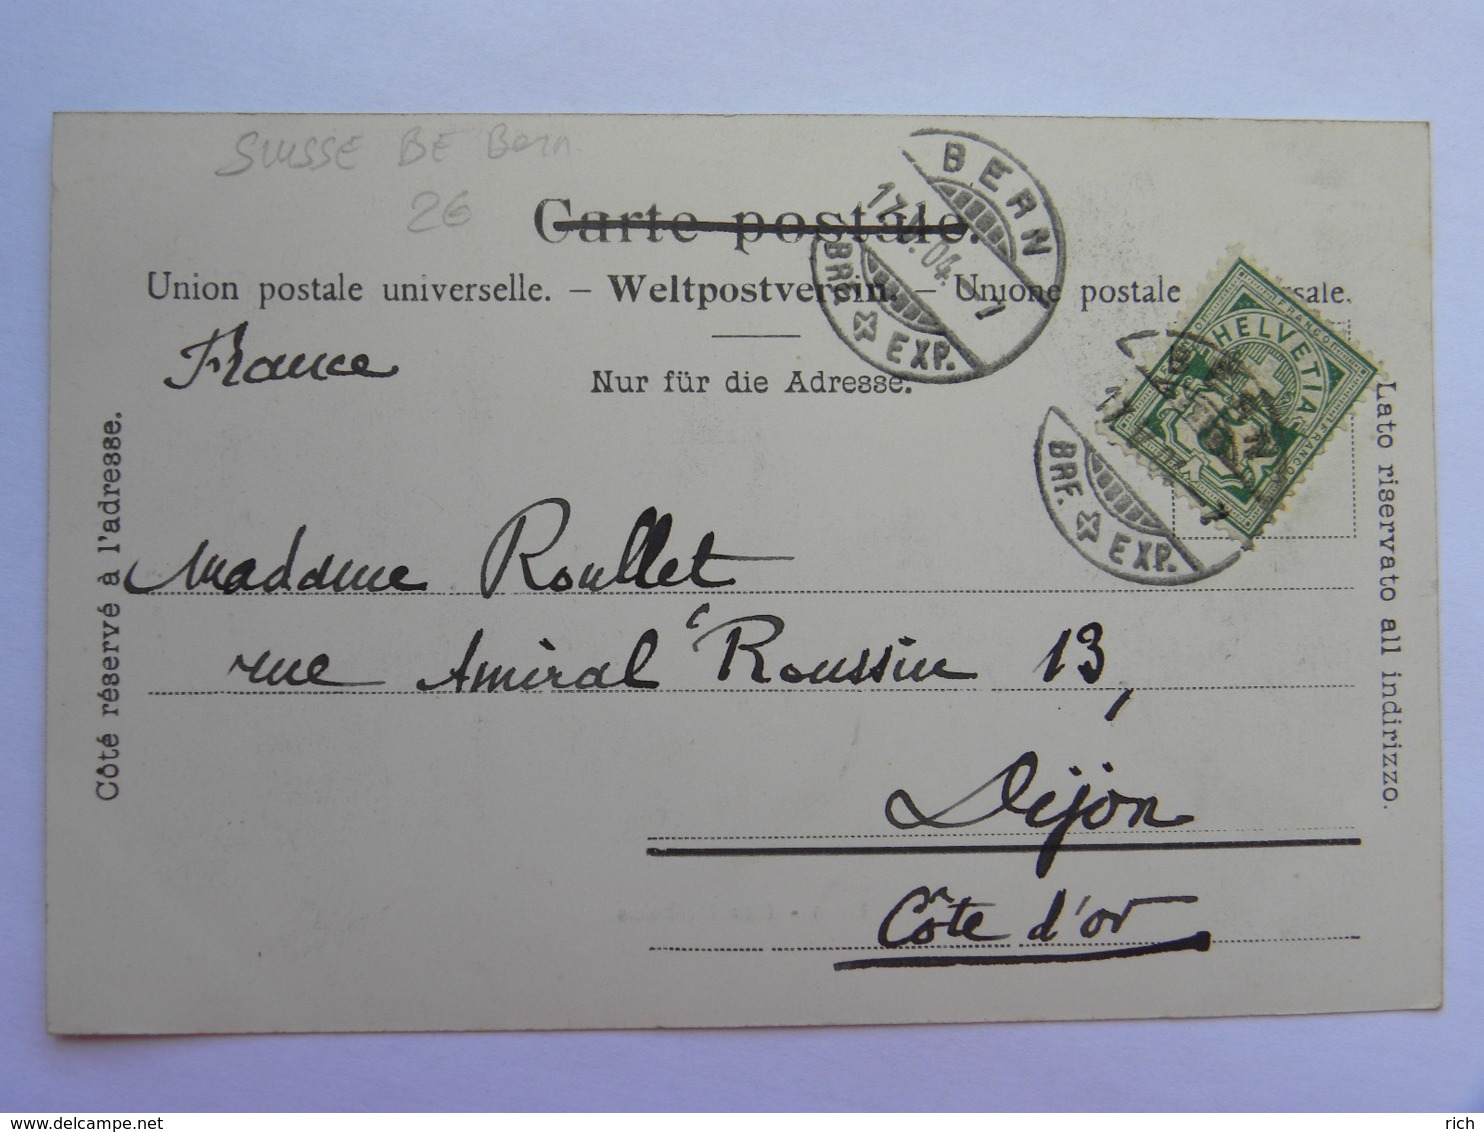 SUISSE BE Bern
26
Carte postale.
Union postale universelle. – Weltpostverein. – Unione postale
Nur für die Adresse.
France
Côté réservé à l'adresse.
Lato riservato all indirizzo.
BERN
17. .04. 
BRF. EXP.
HELVETIA
FRANCO
FRANCO
17
BRF. EXP.
Madame Roullet
rue Amiral Roussin 13,
Dijon
Côte d'or
www.delcampe.net
rich